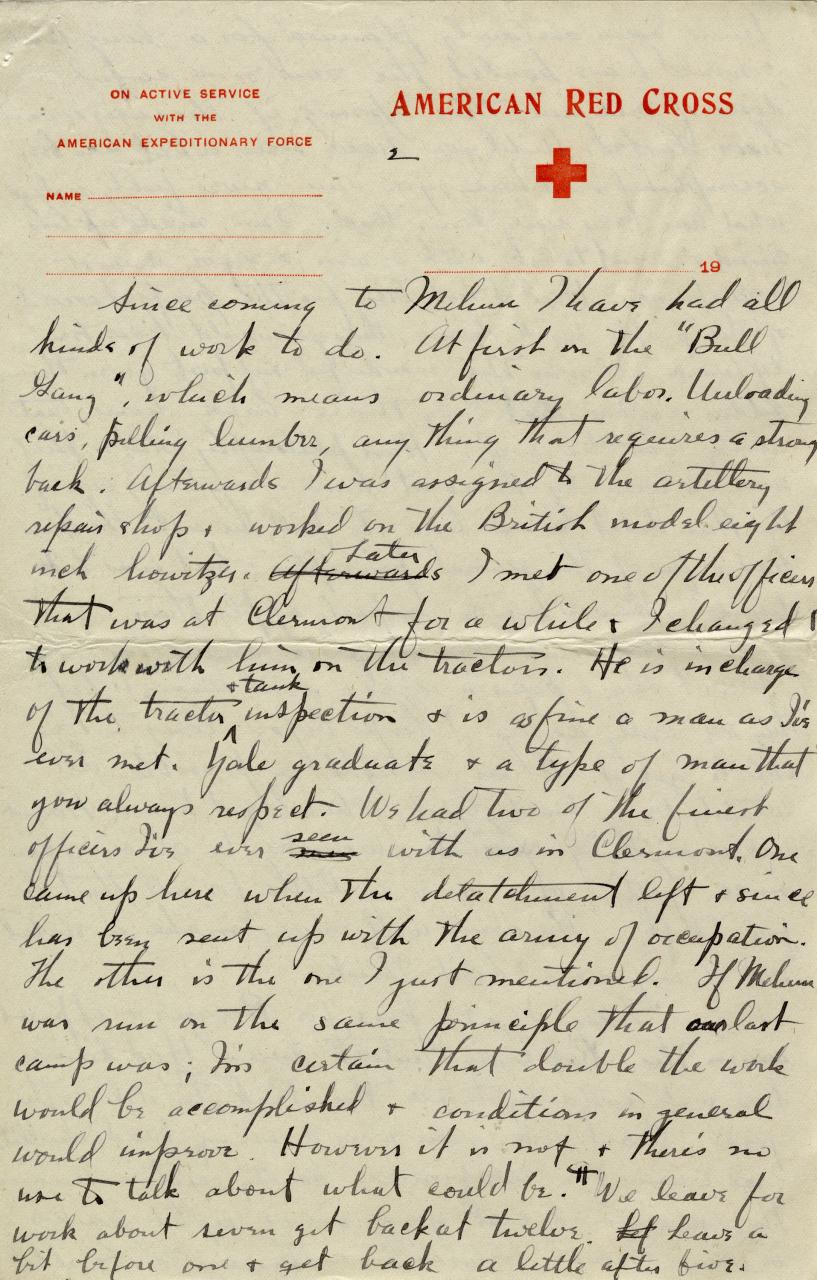 ON ACTIVE SERVICE
WITH THE
AMERICAN EXPEDITIONARY FORCE
NAME
AMERICAN RED CROSS
2
19
Since coming to Mehun I have had all
kinds of work to do. At first on the "Bull
Gang", which means ordinary labor. Unloading
cars, pilling lumber, any thing that requires a strong
back. Afterwards I was assigned to the artillery
repair shop + worked on the British model eight
inch howitzer. Afterwards Later I met one of the officers
that was at Clermont for a while + I changed
to work with him on the tractors. He is in charge
of the tractor + tank inspection + is as fine a man as I've
ever met. Yale graduate + a type of man that
you always respect. We had two of the finest
officers I've ever seen with us in Clermont. One
came up here when the detatchment left + since
has been sent up with the army of occupation.
The other is the one I just mentioned. If Mehun
was run on the same principle that our last
camp was; I'm certain that double the work
would be accomplished + conditions in general
would improve. However it is not + there's no
use to talk about what could be. " We leave for
work about seven get back at twelve. Leave a
bit before one + get back a little after five.